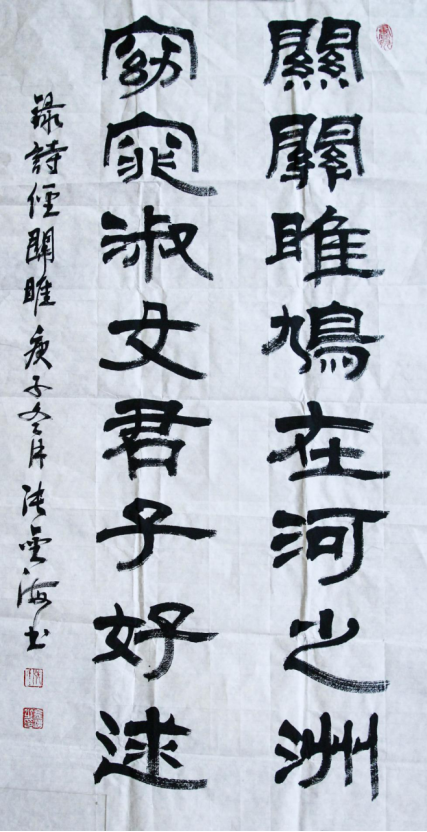 關關雎鳩在河之洲
窈窕淑女君子好逑
錄詩經關雎庚子冬月張雲海書